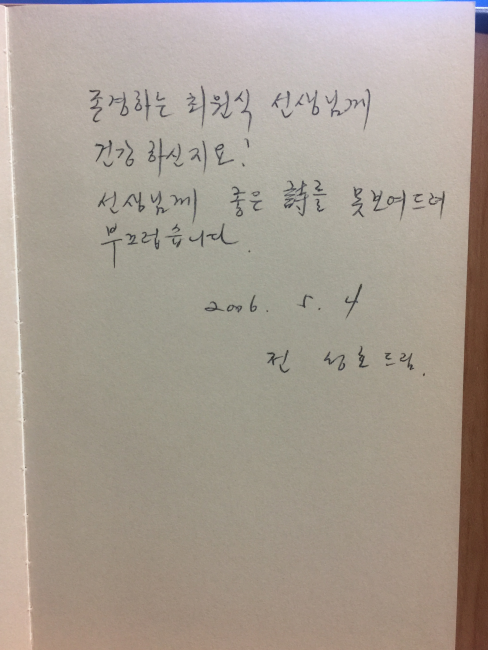 존경하는 최원식 선생님께
건강 하신지요!
선생님께 좋은 詩를 못보여드려
부끄럽습니다.
2006. 5. 4
전 성호 드림.